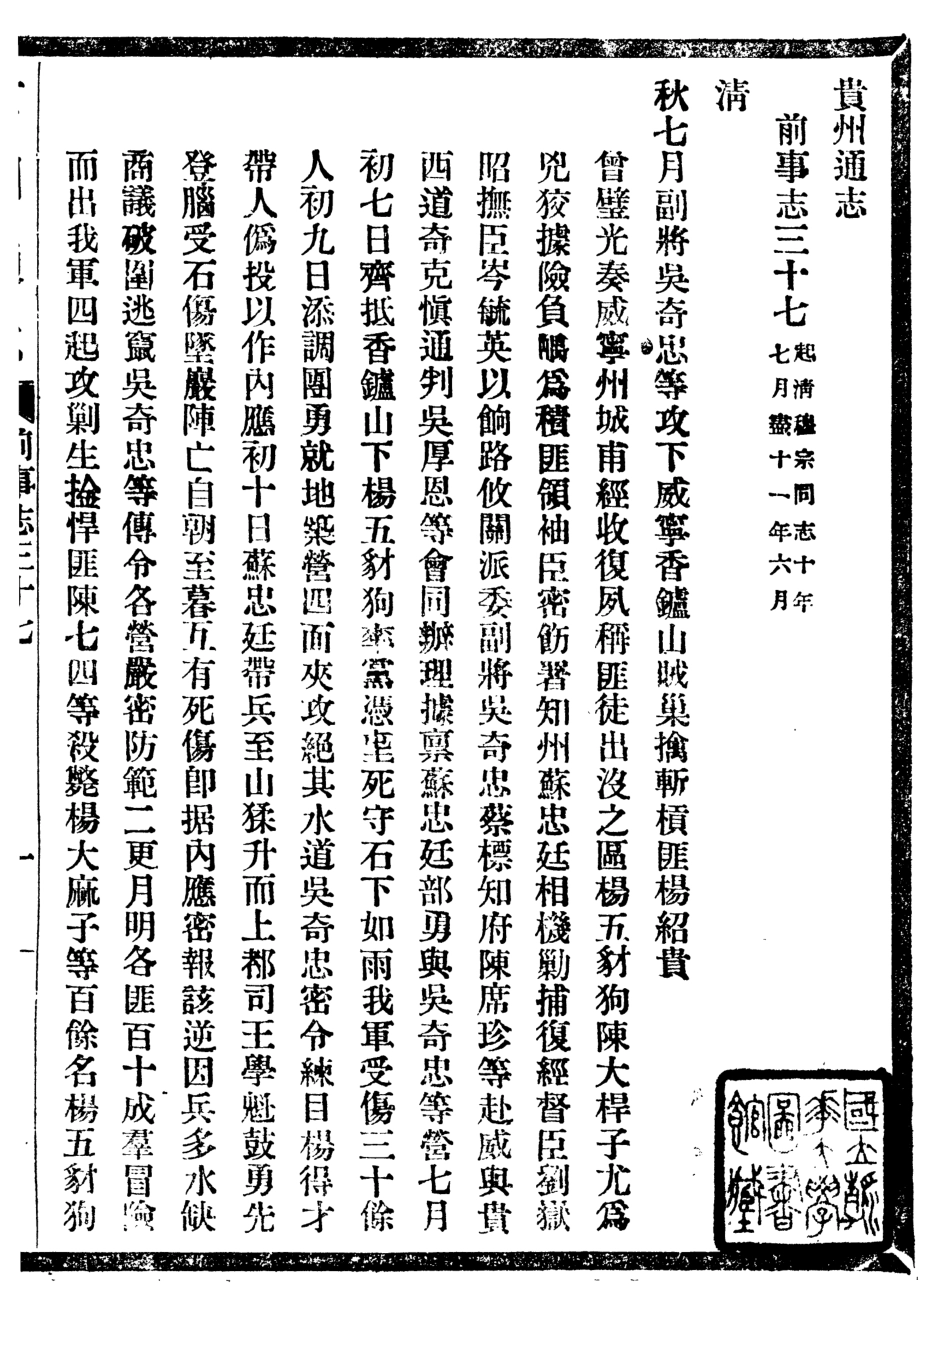 貴州通志
前事志三十七 起清穆宗同志十年
七月盡十一年六月
清
秋七月副將吳奇忠等攻下威寧香鑪山賊巢擒斬槓匪楊紹貴
曾璧光奏威寧州城甫經收復夙稱匪徒出沒之區楊五豺狗陳大桿子尤爲
兇狡據險負嵎爲積匪領袖臣密飭署知州蘇忠廷相機勦捕復經督臣劉嶽
昭撫臣岑毓英以餉路攸關派委副將吳奇忠蔡標知府陳席珍等赴威與貴
西道奇克愼通判吳厚恩等會同辦理據稟蘇忠廷部勇與吳奇忠等營七月
初七日齊抵香鑪山下楊五豺狗率黨憑壘死守石下如雨我軍受傷三十餘
人初九日添調團勇就地築營四面夾攻絕其水道吳奇忠密令練目楊得才
帶人僞投以作內應初十日蘇忠廷帶兵至山猱升而上都司王學魁鼓勇先
登腦受石傷墜巖陣亡自朝至暮互有死傷卽据內應密報該逆因兵多水缺
商議破圍逃竄吳奇忠等傳令各營嚴密防範二更月明各匪百十成羣冒險
而出我軍四起攻剿生擒悍匪陳七四等殺斃楊大麻子等百餘名楊五豺狗
前事志三十七
一
國立
大學
圖書
館藏